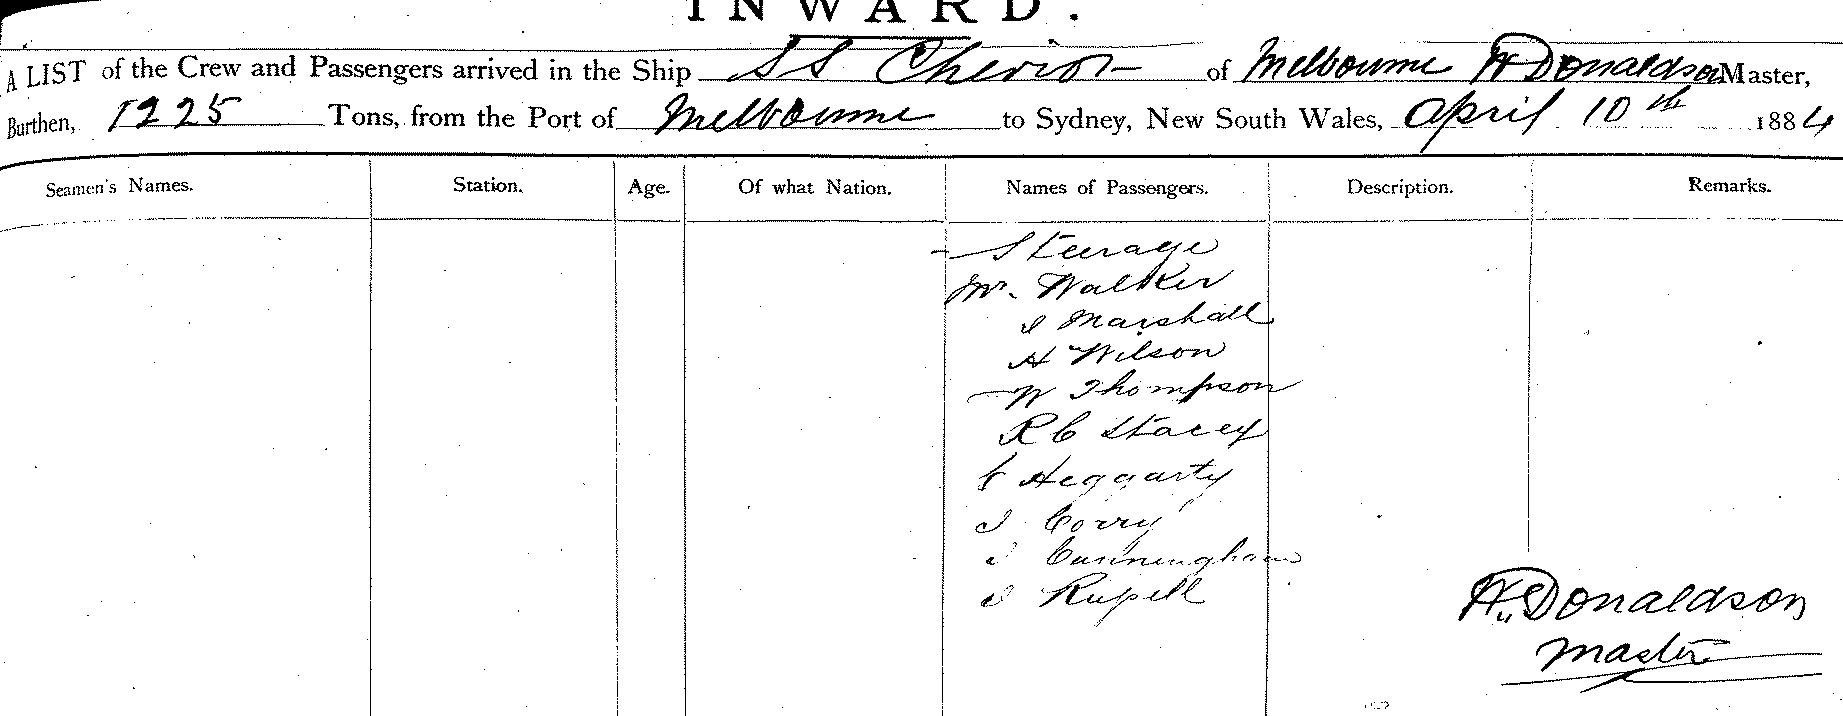 INWARD.
A LIST of the Crew and Passengers arrived in the Ship SS Cheviot of Melbourne H Donaldson Master,
Burthen, 1225 Tons, from the Port of Melbourne to Sydney, New South Wales, April 10th 1884
Seamen's Names. Station. Age. Of what Nation. Names of Passengers. Description. Remarks.
Steerage
Mr. Walker
J Marshall
H Wilson
W Thompson
R C Stacey
C Heggarty
J Corry
J Cunningham
J Russell
H. Donaldson
Master